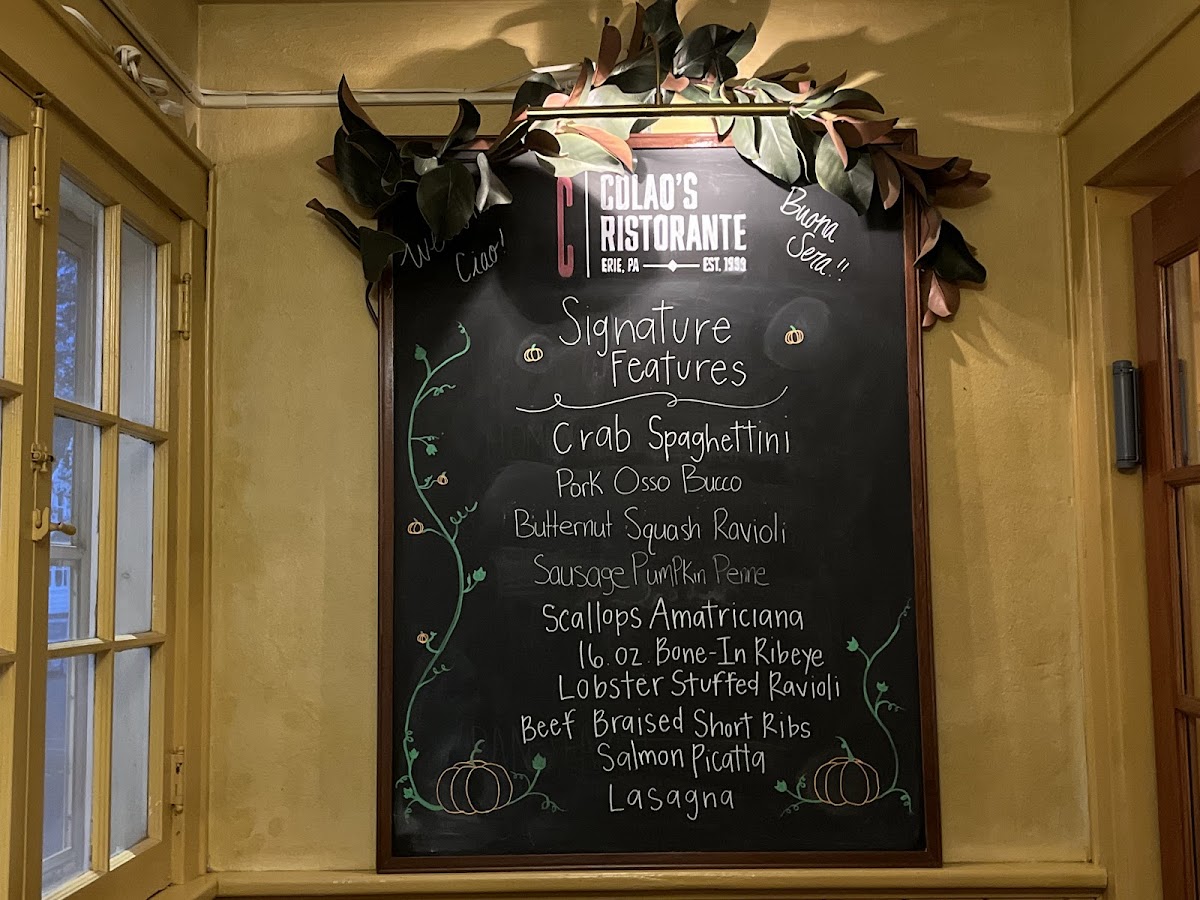 C
COLAO'S
RISTORANTE
ERIE, PA EST. 1999
Ciao!
Buona
Sera!!
Signature
Features
Crab Spaghettini
Pork Osso Bucco
Butternut Squash Ravioli
Sausage Pumpkin Penne
Scallops Amatriciana
16.oz. Bone-In Ribeye
Lobster Stuffed Ravioli
Beef Braised Short Ribs
Salmon Picatta
Lasagna